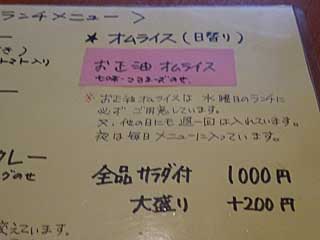 ランチメニュー >
★ オムライス (日替り)
き)
トマト入り
お正油 オムライス
※ お正油オムライスは 水曜日のランチに
必ず ご用意しています。
又、他の日にも 週一回は入れています。
夜は 毎日 メニューに入っています。
カレー
グのせ
全品 サラダ付 1000円
大盛り +200円
変えています。